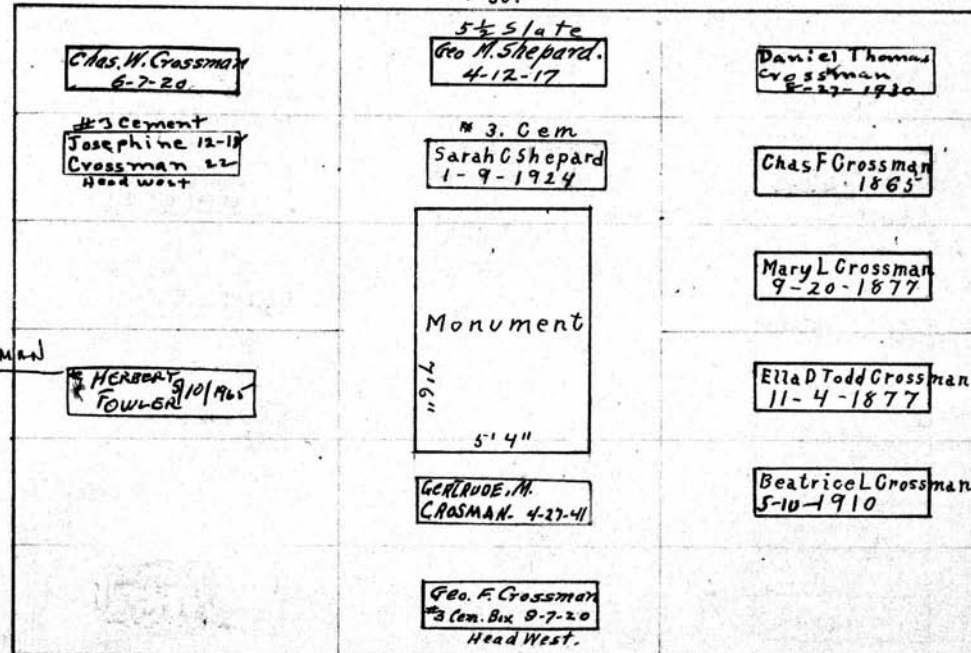 Chas. W. Crossman
6-7-20
# 3 Cement
Josephine 12-18
Crossman 22
Head West
HERBERT
TOWLER 9/10/1965
5½ Slate
Geo M. Shepard.
4-12-17
# 3. Cem
Sarah C Shepard
1-9-1924
Monument
7'6"
5'4"
GERTRUDE. M.
CROSMAN. 4-27-41
Geo. F. Crossman
#3 Cem. Box 9-7-20
Head West.
Daniel Thomas
Crossman
8-27-1930
Chas F Crossman
1865
Mary L Crossman
9-20-1877
Ella D Todd Crossman
11-4-1877
Beatrice L Crossman
5-10-1910